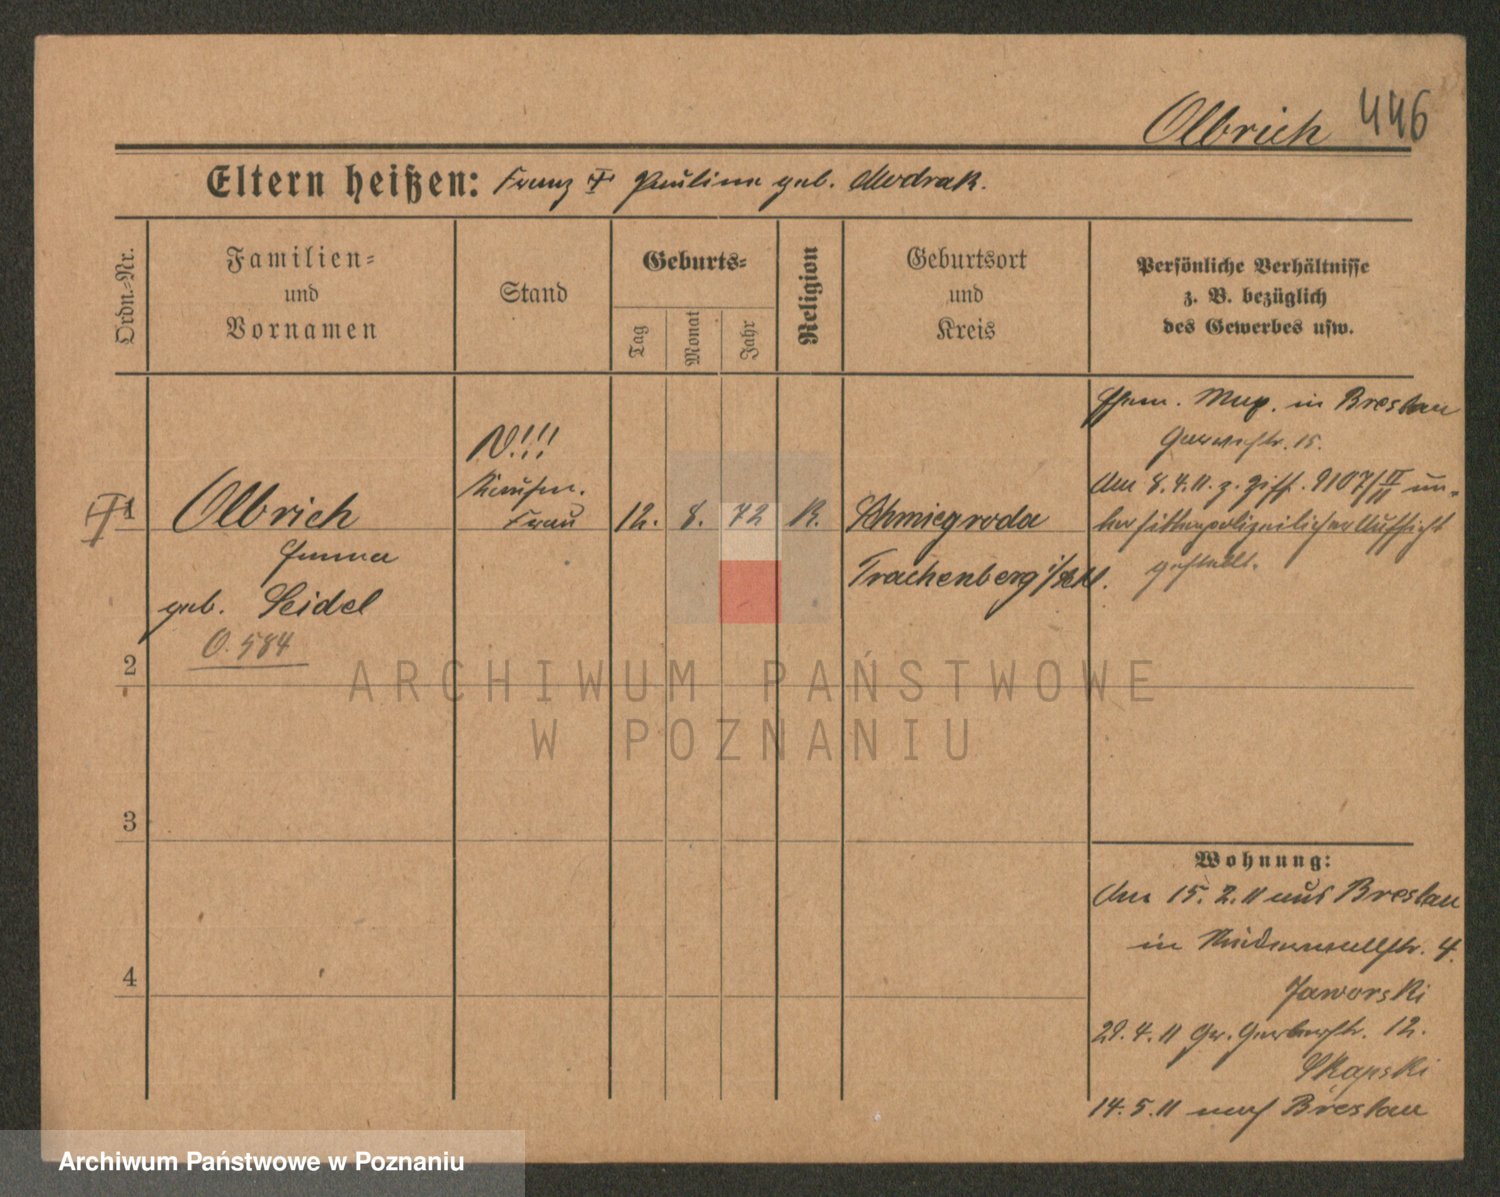 Olbrich 446
Eltern heißen: Franz † Pauline geb. Modrak.
Ordn.-Nr.
Familien-
und
Vornamen
Stand
Geburts-
Tag
Monat
Jahr
Religion
Geburtsort
und
Kreis
Persönliche Verhältnisse
z. B. bezüglich
des Gewerbes usw.
† 1
Olbrich
Emma
geb. Seidel
O. 584
N!!!
Kaufm.
Frau
12. 8. 72 K.
Schmiegroda
Trachenberg i/Schl.
Ehem. in Breslau
15.
Am 8.4.11 z. Ziff. 9107/II 11 un-
ter sittenpolizeilicher Aufsicht
gestellt.
2
3
4
Wohnung:
Am 15.2.11 aus Breslau
in Niederwallstr. 4.
Jaworski
29.4.11 Gr. Gerberstr. 12.
Skapski
14.5.11 nach Breslau
ARCHIWUM PAŃSTWOWE
W POZNANIU
Archiwum Państwowe w Poznaniu